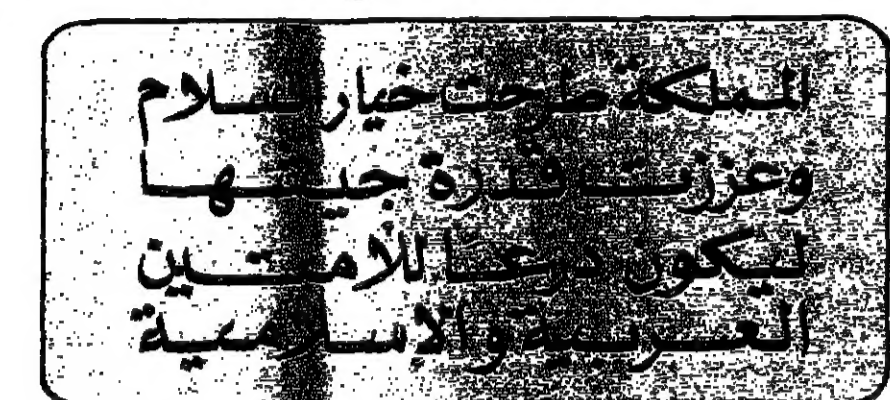 المملكة طرحت خيار السلام
وعززت قدرة جيشها
ليكون درعا للأمتين
العربية والإسلامية